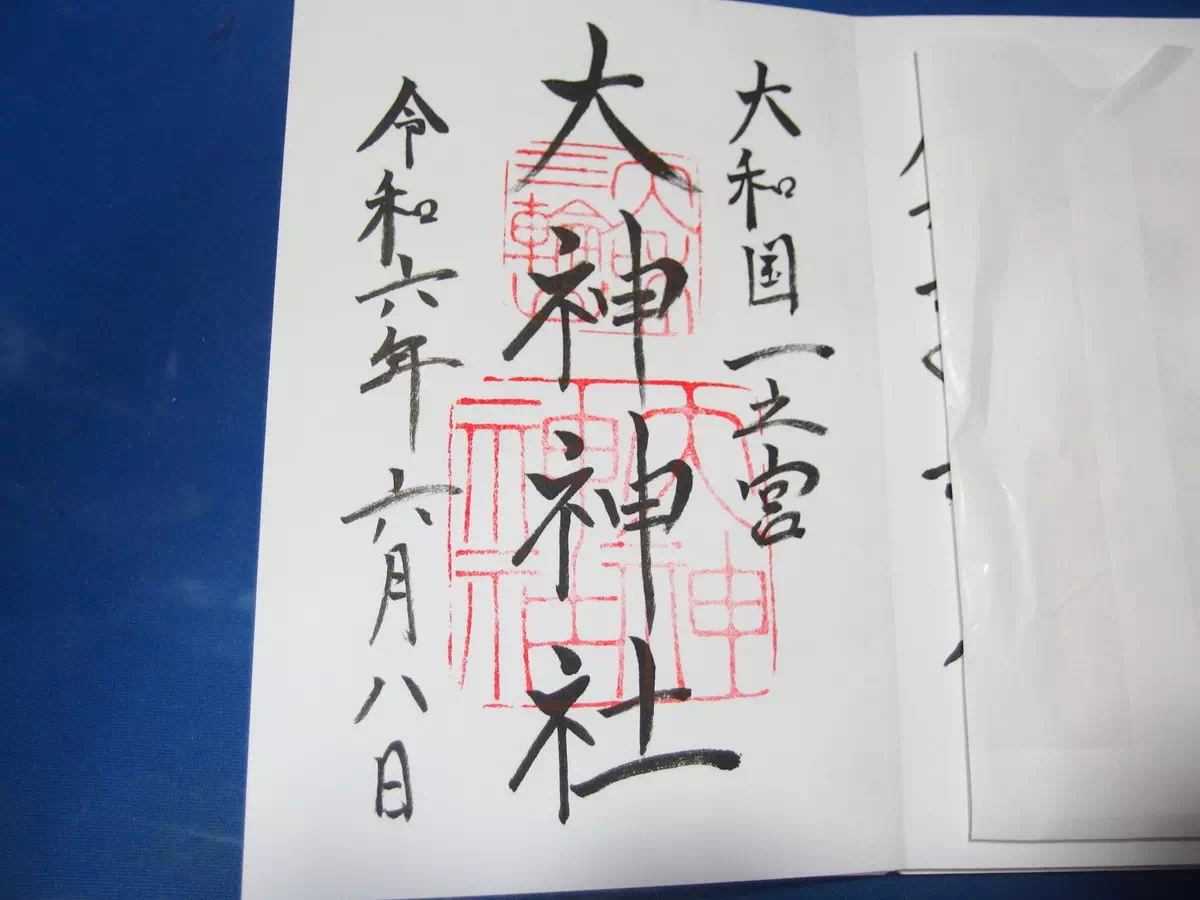 大和国一之宮
大神神社
令和六年六月八日
大神
神社